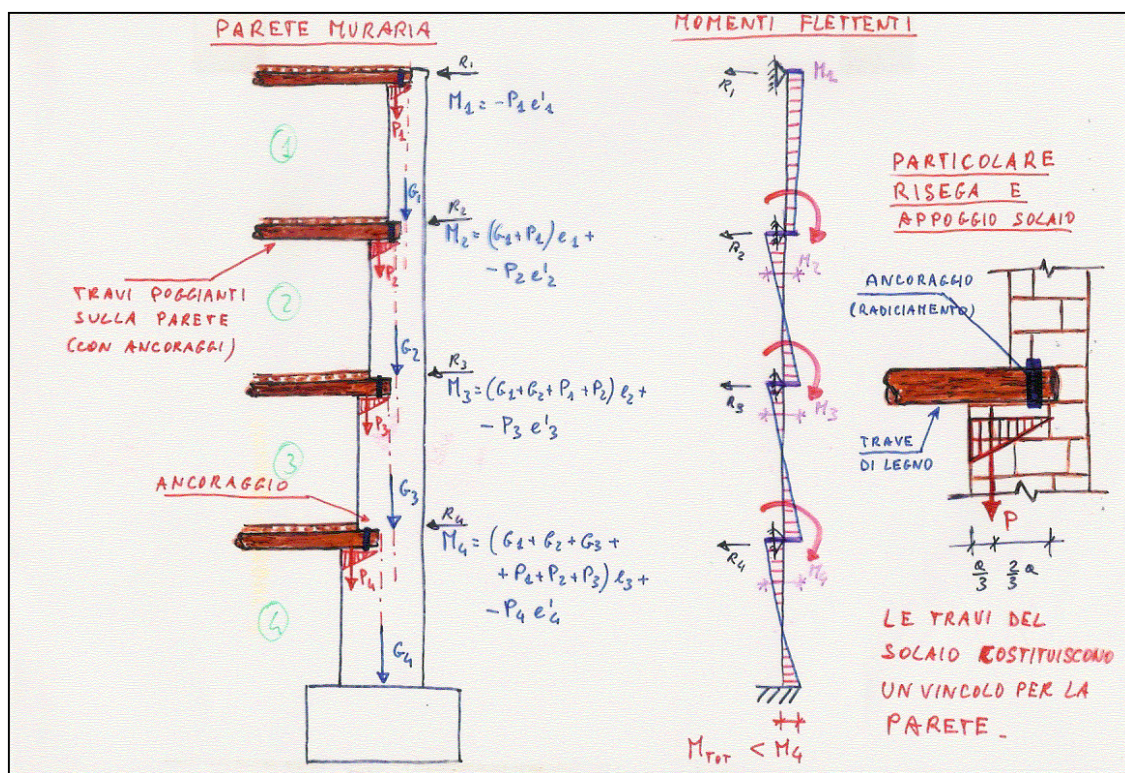 PARETE MURARIA
R1
M1 = -P1 e'1
P1
1
G1
R2
M2 = (G1+P1) e1 +
- P2 e'2
P2
TRAVI POGGIANTI
SULLA PARETE
(CON ANCORAGGI)
2
G2
R3
M3 = (G1+G2+P1+P2) e2 +
- P3 e'3
P3
3
ANCORAGGIO
G3
R4
M4 = (G1+G2+G3+
+P1+P2+P3) e3 +
- P4 e'4
P4
4
G4
MOMENTI FLETTENTI
R1
R2
M2
R3
M3
R4
M4
MTOT < M4
PARTICOLARE
RISEGA E
APPOGGIO SOLAIO
ANCORAGGIO
(RADICIAMENTO)
TRAVE
DI LEGNO
P
a/3 2/3 a
LE TRAVI DEL
SOLAIO COSTITUISCONO
UN VINCOLO PER LA
PARETE _